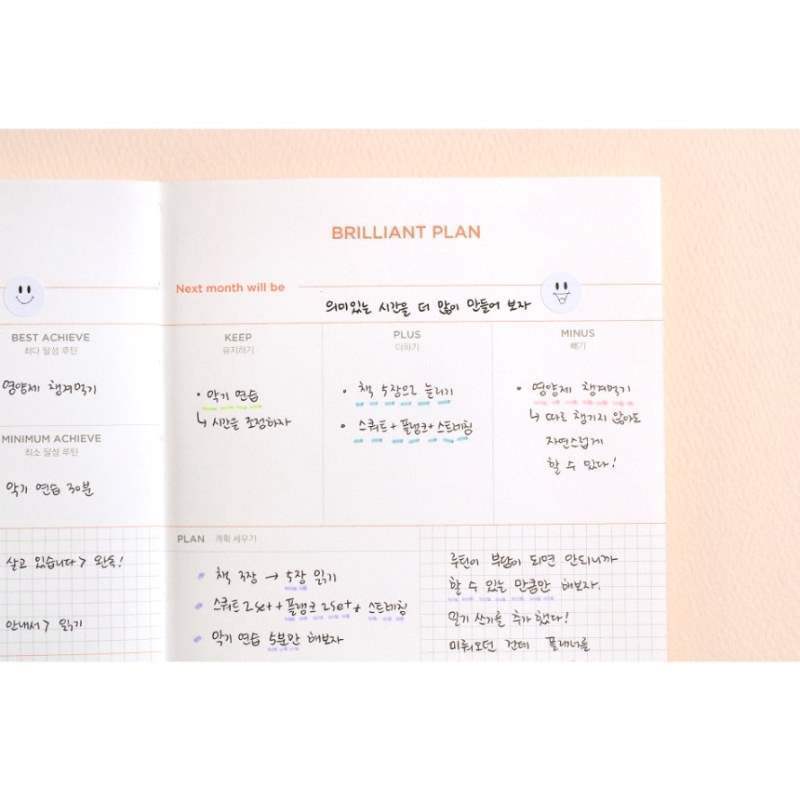 BEST ACHIEVE
최다 달성 루틴
영양제 챙겨먹기
MINIMUM ACHIEVE
최소 달성 루틴
악기 연습 30분
살고 있습니다> 완독!
안내서> 읽기
BRILLIANT PLAN
Next month will be
의미있는 시간을 더 많이 만들어 보자
KEEP
유지하기
• 악기 연습
↳ 시간을 조정하자
PLUS
더하기
• 책 5장으로 늘리기
• 스쿼트+플랭크+스트레칭
MINUS
빼기
• 영양제 챙겨먹기
↳ 따로 챙기지 않아도
자연스럽게
할 수 있다!
PLAN 계획 세우기
책 3장 → 5장 읽기
스쿼트 2set+플랭크 2set+스트레칭
악기 연습 5분만 해보자
루틴이 부담이 되면 안되니까
할 수 있는 만큼만 해보자.
일기 쓰기를 추가했다!
미뤄오던 건데 플래너를